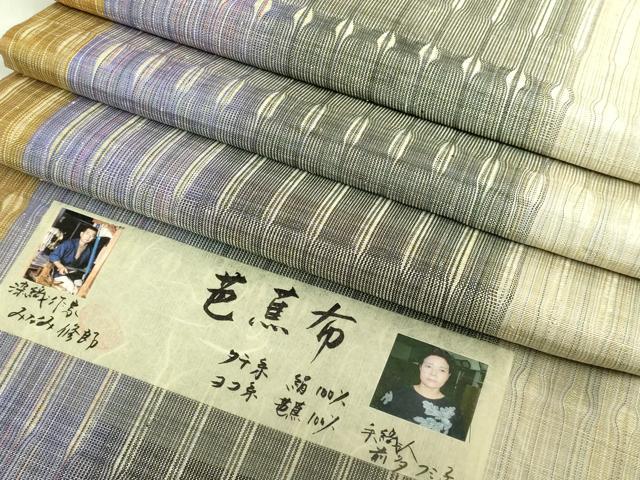 芭蕉布
タテ糸 絹100%
ヨコ糸 芭蕉100%
染織作家
みなみ修郎
手織人
前多フミ子